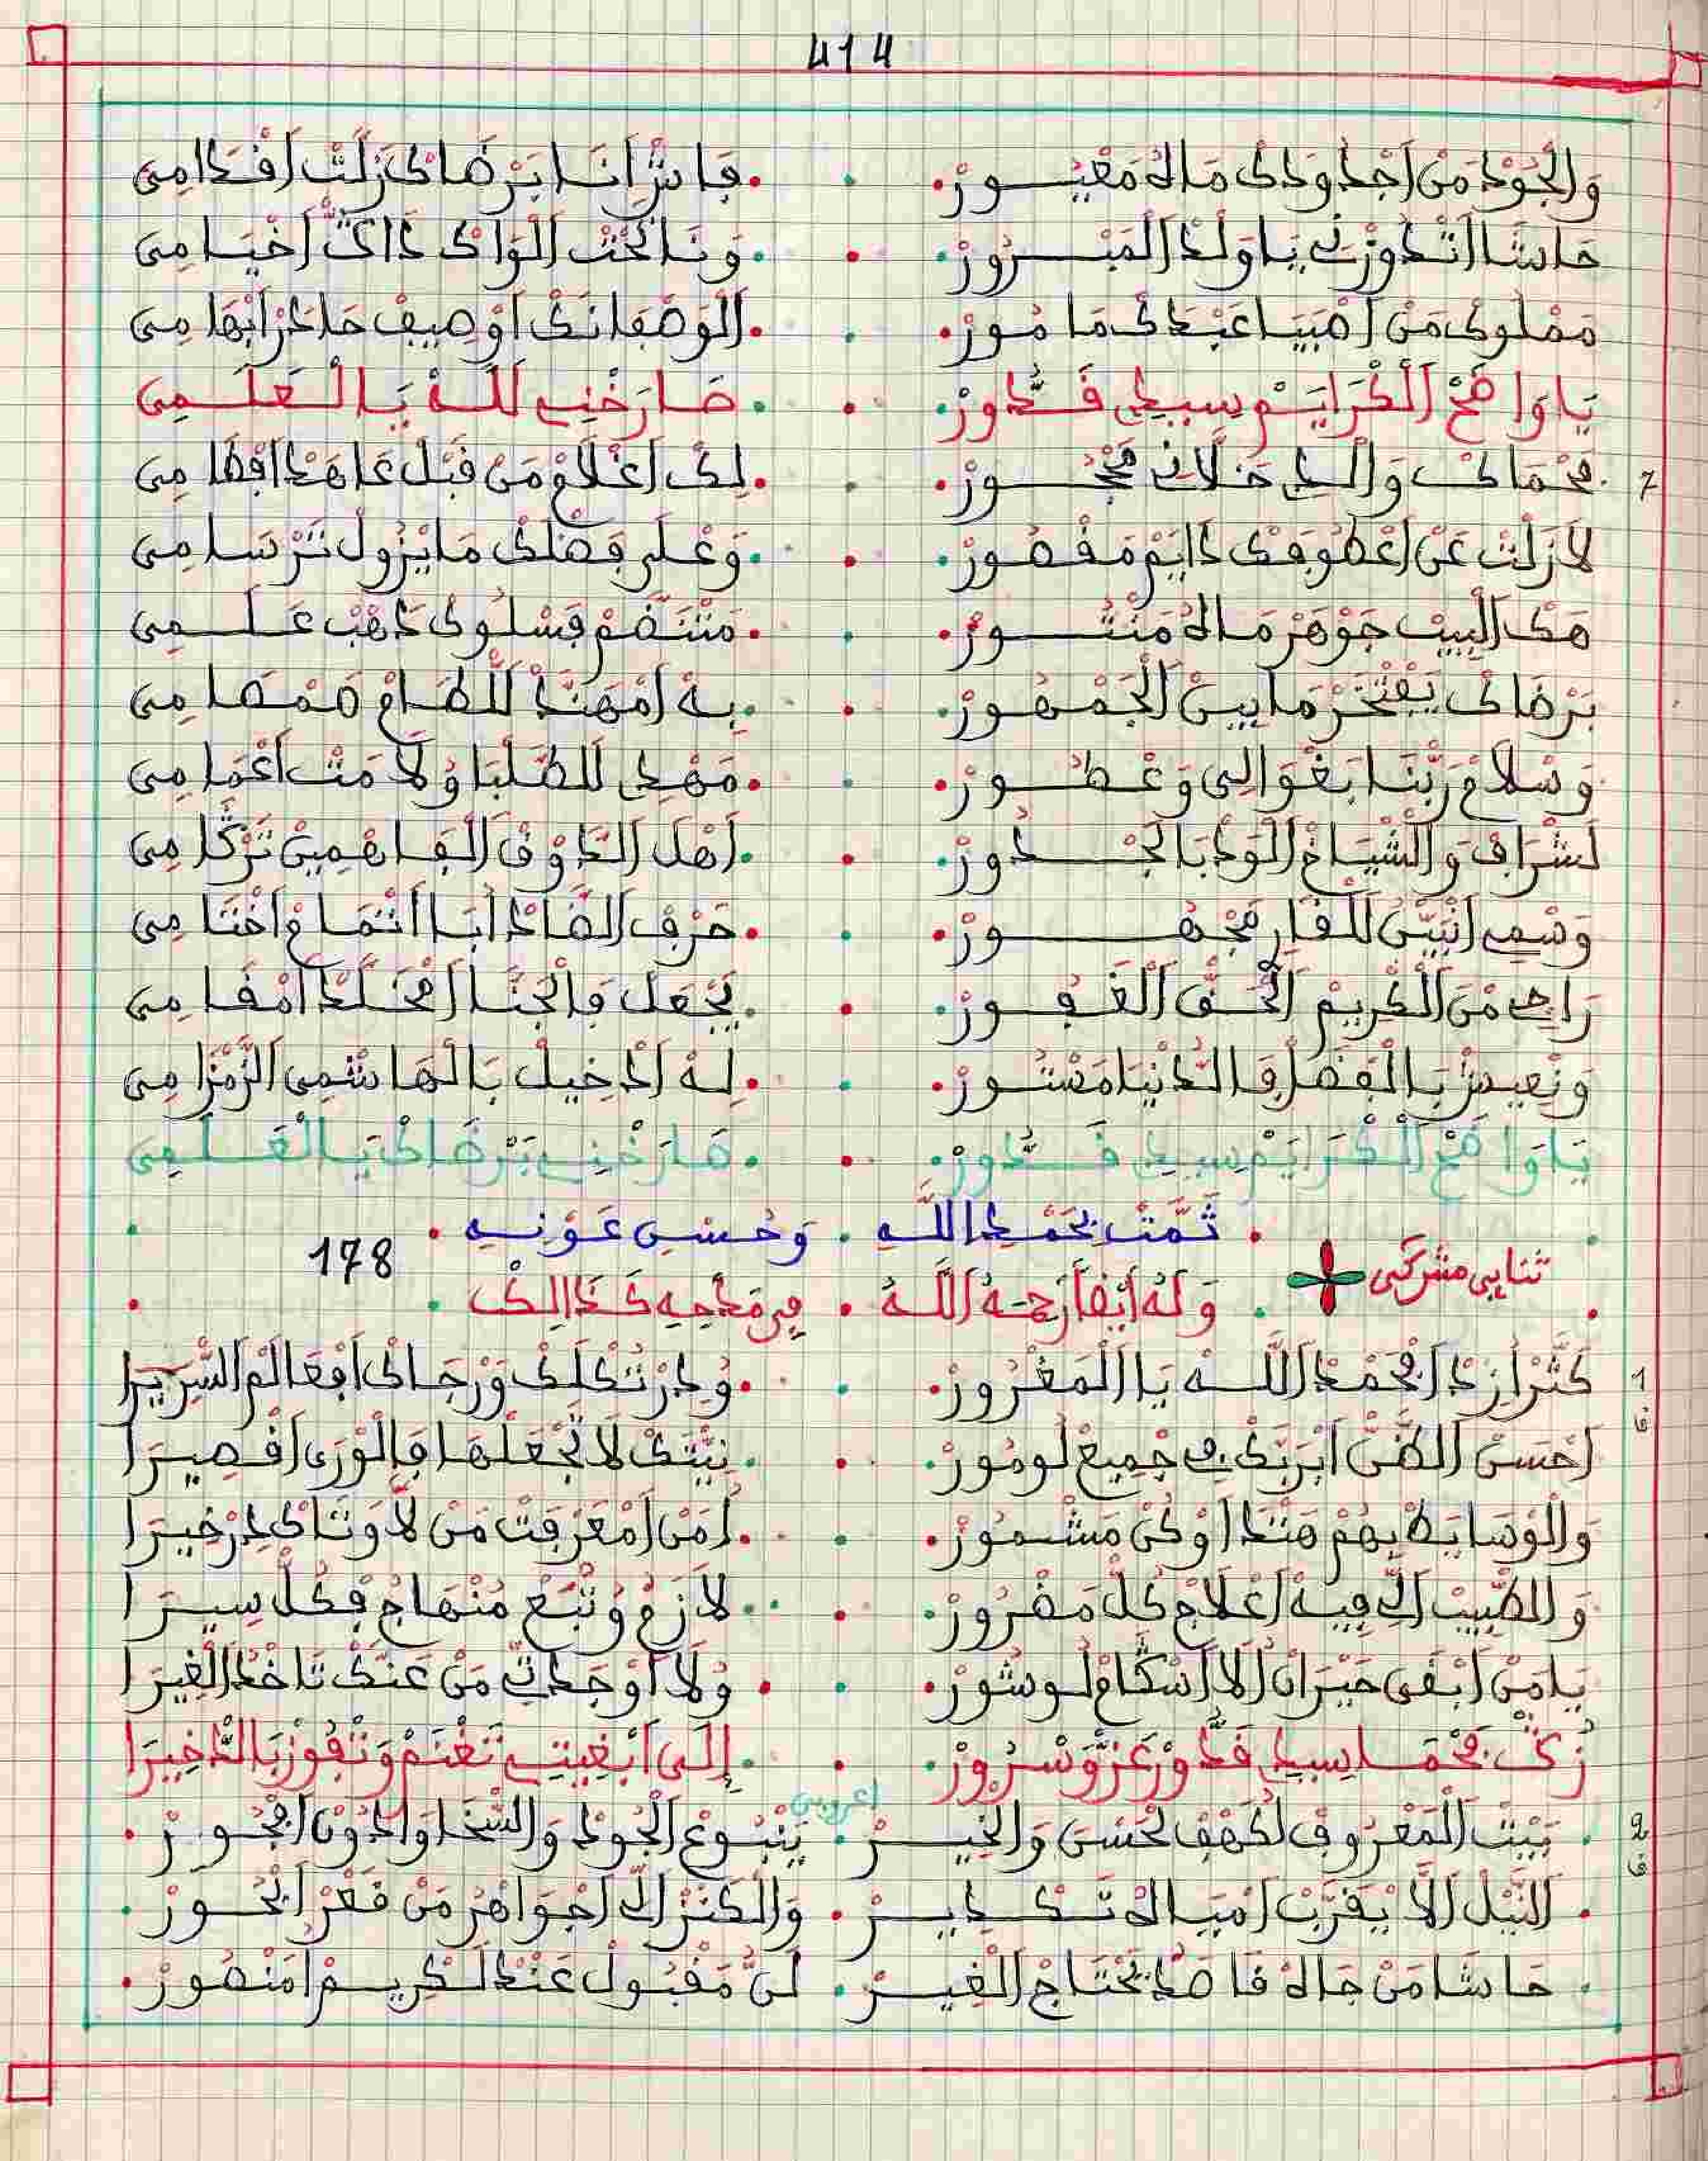 414
وَالْجُوْدْ مَنْ اَجْدُودَكْ مَالُهْ مَغْيُـــورْ . فَاشْ اَنَـا بَرْضَاكْ زَلَّتْ اَقْدَامِي
حَاشَا اَتْدُوزْنِي يَا وَلْدْ اَلْمَبْـــرُورْ . وَنَا تَحْتْ اَلْوَاكْ ذَاكْ اَخْيَـامِي
مَمْلُوكْ مَنْ اَصْبَيَا عَبْدَكْ مَامُورْ . اَلْوَصْفَانَكْ اَوْصِيفْ حَادَرْ اَبْهَامِي
يَا وَاضَحْ اَلْكْرَايَمْ سِيدِي قَـدُّورْ . صَارَخْنِي لَلـهْ يَـا لْـعَـلَـمِي
7 مَحْمَاكْ وَالْدِي خَلَّانِي مَجْبُـورْ . لِكْ اَغْلَامْ مَنْ قَبْلْ عَاهَدْ اَفْطَامِي
لَا زَلْتْ عَنْ اَعْطُوفَكْ دَايَمْ مَقْصُورْ . وَعْلَى فَضْلَكْ مَا يْزُولْ تَرْسَامِي
هَكْ اَلْبِيتْ جَوْهَرْ مَالُهْ مَنْثُـــورْ . مَنْتَضَمْ فَسْلُوكْ ذَهْبْ عَـلَـمِي
بَرْضَاكْ يَفْتْخَرْ مَابِينْ اَلْجَمْهُورْ . بِـهْ اَمْهَنَّدْ لَلْطَـامْ صَمْصَامِي
وَسْلَامْ رَبَّنَا بَغْوَالِي وَعْـطُـورْ . مَهْدِي لَلطَّلْبَا وُلَا مَتْ اَعْمَامِي
لَشْرَافْ وَالشْيَاخْ اَلْوَدْبَا لَجْـدُورْ . اَهْلْ اَلدَّوْقْ اَلْفَـاهْمِينْ تَرْكَامِي
وَسْمِي اَنْبَيَّنْ لَلْقَارِي مَجْهُـــورْ . حَرْفْ اَلضَّادْ اَبَـا اَتْمَامْ اَخْتَامِي
رَاجِي مْنْ اَلْكْرِيمْ اَلْحَـقّْ اَلْغَفُورْ . يَجْعَلْ فَالْجَنَّـا اَلْمَخَلَّدْ اَمْقَـامِي
وَنْعِيشْ بَالْفَضْلْ فَالدُّنْيَا مَسْتُـورْ . لِـهْ اَدْخِيلْ بَالْهَاشْمِي اَلزَّمْزَامِي
يَـا وَاضَحْ اَلْكْرَايَمْ سِيدِي قَـدُّورْ . صَارَخْنِي بَرْضَاكْ يَـا لْعَـلَـمِي
تَمَّتْ بِحَمْدِ اللَّهِ . وَحُسْنِ عَوْنِـهِ
ثنايي مشركي 178
وَلَهُ أَيْضاً رَحِمَهُ اللَّهُ . فِي مَدْحِهِ كَـذَالِكَ
1 كَثَّرْ اَزِدْ اَلْحَمْدْ اَللَّـهْ يَا اَلْمَغْرُورْ . وُدِرْ تُكْلَكْ وَرْجَاكْ اَفْعَالَمْ السّْرِيرَا
اَحْسَنْ اَلظَّنّْ اَبْرَبَّكْ فِي جْمِيعْ لُومُورْ . نِيّْتَكْ لَا تَجْعَلْهَا فَالْوْرَى اَقْصِيرَا
وَالْوْسَايَطْ بِهُمْ هَتَّدْ اَوْكُنْ مَشْمُورْ . اَمَنْ اَمْعَرْفَتْ مَنْ لَاوْتَاكْ دِرْخِيرَا
وَالطّْبِيبْ اَلِّي فِيهْ اَعْلَاجْ كُلّْ مَضْرُورْ . لَازَمْ وُتْبَعْ مَنْهَاجْ فْكُلّْ سِيـرَا
يَا مَنْ اَبْقَى حَيْرَانْ اَلَا اَسْكَامْ لُوشُورْ . وُلَا اَوْجَدْتِي مَنْ عَنْدَكْ تَاخْدْ الْغِيرَا
زُكْ مَحْمَـا سِيدِي قَدُّورْ عَزّْ وَسْرُورْ . اِلَى اَبْغِيتِـي تَغْنَمْ وَتْفُوزْ بَالذّْخِيرَا
اعروبي
2 بَيْتْ اَلْمَعْرُوفْ لَكْهَفْ لَحْسَنْ وَالْخِيـرْ . يَنْبُـوعْ اَلْجُودْ وَالسّْخَاوَا دُونْ اَفْجُـورْ
اَلنِّيلْ اَلَّا يْقَرَّبْ اَمْيَـالُهْ تَـكْـدِيـرْ . وَالْكَنْزْ اَلِّي اَجْوَاهْرُ مَنْ قَعْرْ اَبْحُـورْ
حَاشَـا مَنْ جَالُهْ قَاصَدْ يَحْتَاجْ اَلْغِيـرْ . لَنُّ مَقْبُـولْ عَنْدْ لَكْرِيـمْ اَمَنْصُـورْ